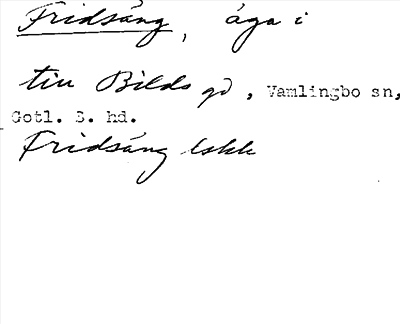 Fridsäng, äga i
till Bilds gd, Vamlingbo sn,
Gotl. S. hd.
Fridsäng lskk